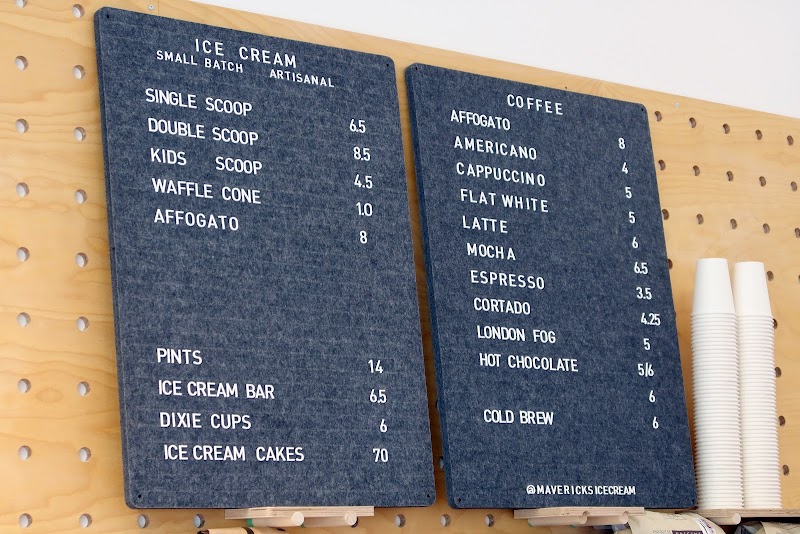 ICE CREAM
SMALL BATCH ARTISANAL
SINGLE SCOOP 6.5
DOUBLE SCOOP 8.5
KIDS SCOOP 4.5
WAFFLE CONE 1.0
AFFOGATO 8
PINTS 14
ICE CREAM BAR 6.5
DIXIE CUPS 6
ICE CREAM CAKES 70
COFFEE
AFFOGATO 8
AMERICANO 4
CAPPUCCINO 5
FLAT WHITE 5
LATTE 6
MOCHA 6.5
ESPRESSO 3.5
CORTADO 4.25
LONDON FOG 5
HOT CHOCOLATE 5/6
6
COLD BREW 6
@MAVERICKSICECREAM